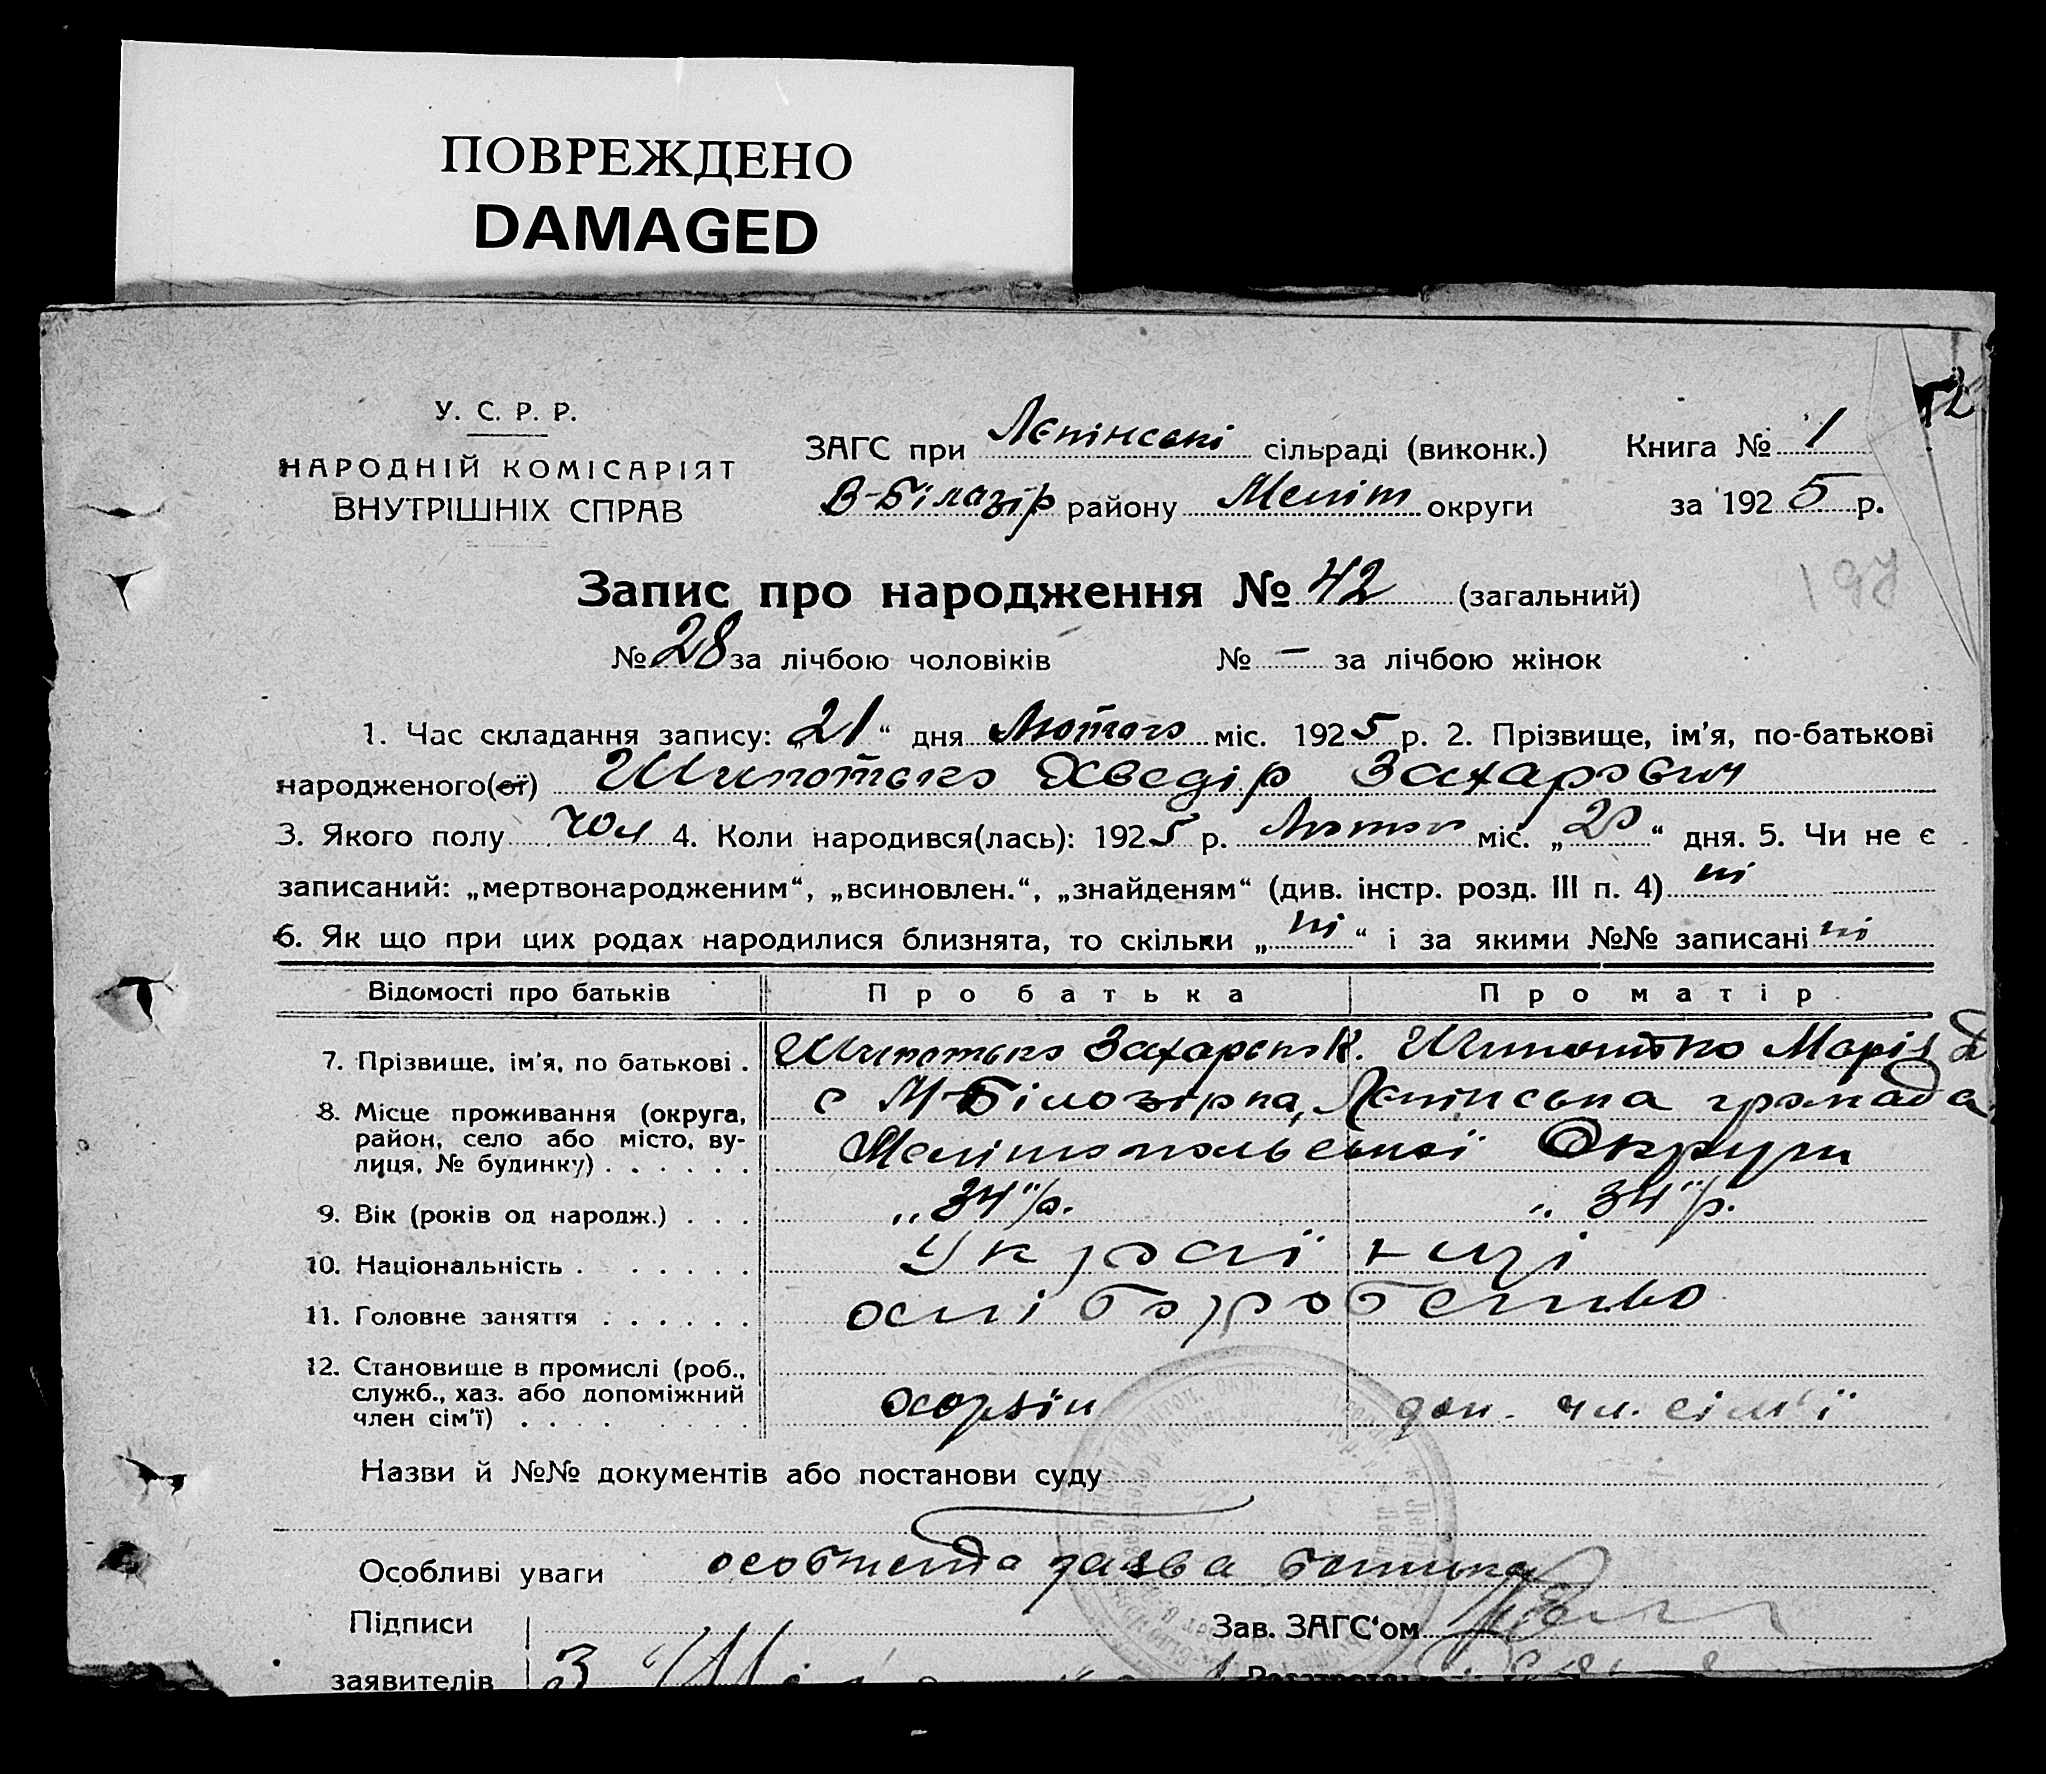 ПОВРЕЖДЕНО
DAMAGED
У. С. Р. Р.
НАРОДНІЙ КОМІСАРІЯТ
ВНУТРІШНІХ СПРАВ
ЗАГС при Лєпінські сільраді (виконк.)
В-Білазір району Меліт округи
Книга № 1
за 1925 р.
197
Запис про народження № 42 (загальний)
№ 28 за лічбою чоловіків № – за лічбою жінок
1. Час складання запису: „21“ дня Лютого міс. 1925 р. 2. Прізвище, ім'я, по-батькові
народженого(ої) Шипотько Хведір Захарович
3. Якого полу чол 4. Коли народився(лась): 1925 р. Лютого міс. „20“ дня. 5. Чи не є
записаний: „мертвонародженим“, „всиновлен.“, „знайденям“ (див. інстр. розд. III п. 4) ні
6. Як що при цих родах народилися близнята, то скільки „ні“ і за якими №№ записані ні
Відомості про батьків Про батька Про матір
7. Прізвище, ім'я, по батькові . Шипотько Захар К. Шипотько Марія Д
8. Місце проживання (округа, район, село або місто, вулиця, № будинку) . . . . . . с М-Білозірка, Лєпінська громада
Мелітопольської Округи
9. Вік (років од народж.) . . . „34“ р. „34“ р.
10. Національність . . . . . . Українці
11. Головне заняття . . . . . . хліборобство
12. Становище в промислі (роб.,
служб., хаз. або допоміжний
член сім'ї) . . . . . . . . хорзін доп. чл. сім'ї
Назви й №№ документів або постанови суду
Особливі уваги особиста заява батька
Підписи Зав. ЗАГС'ом
заявителів З Ш